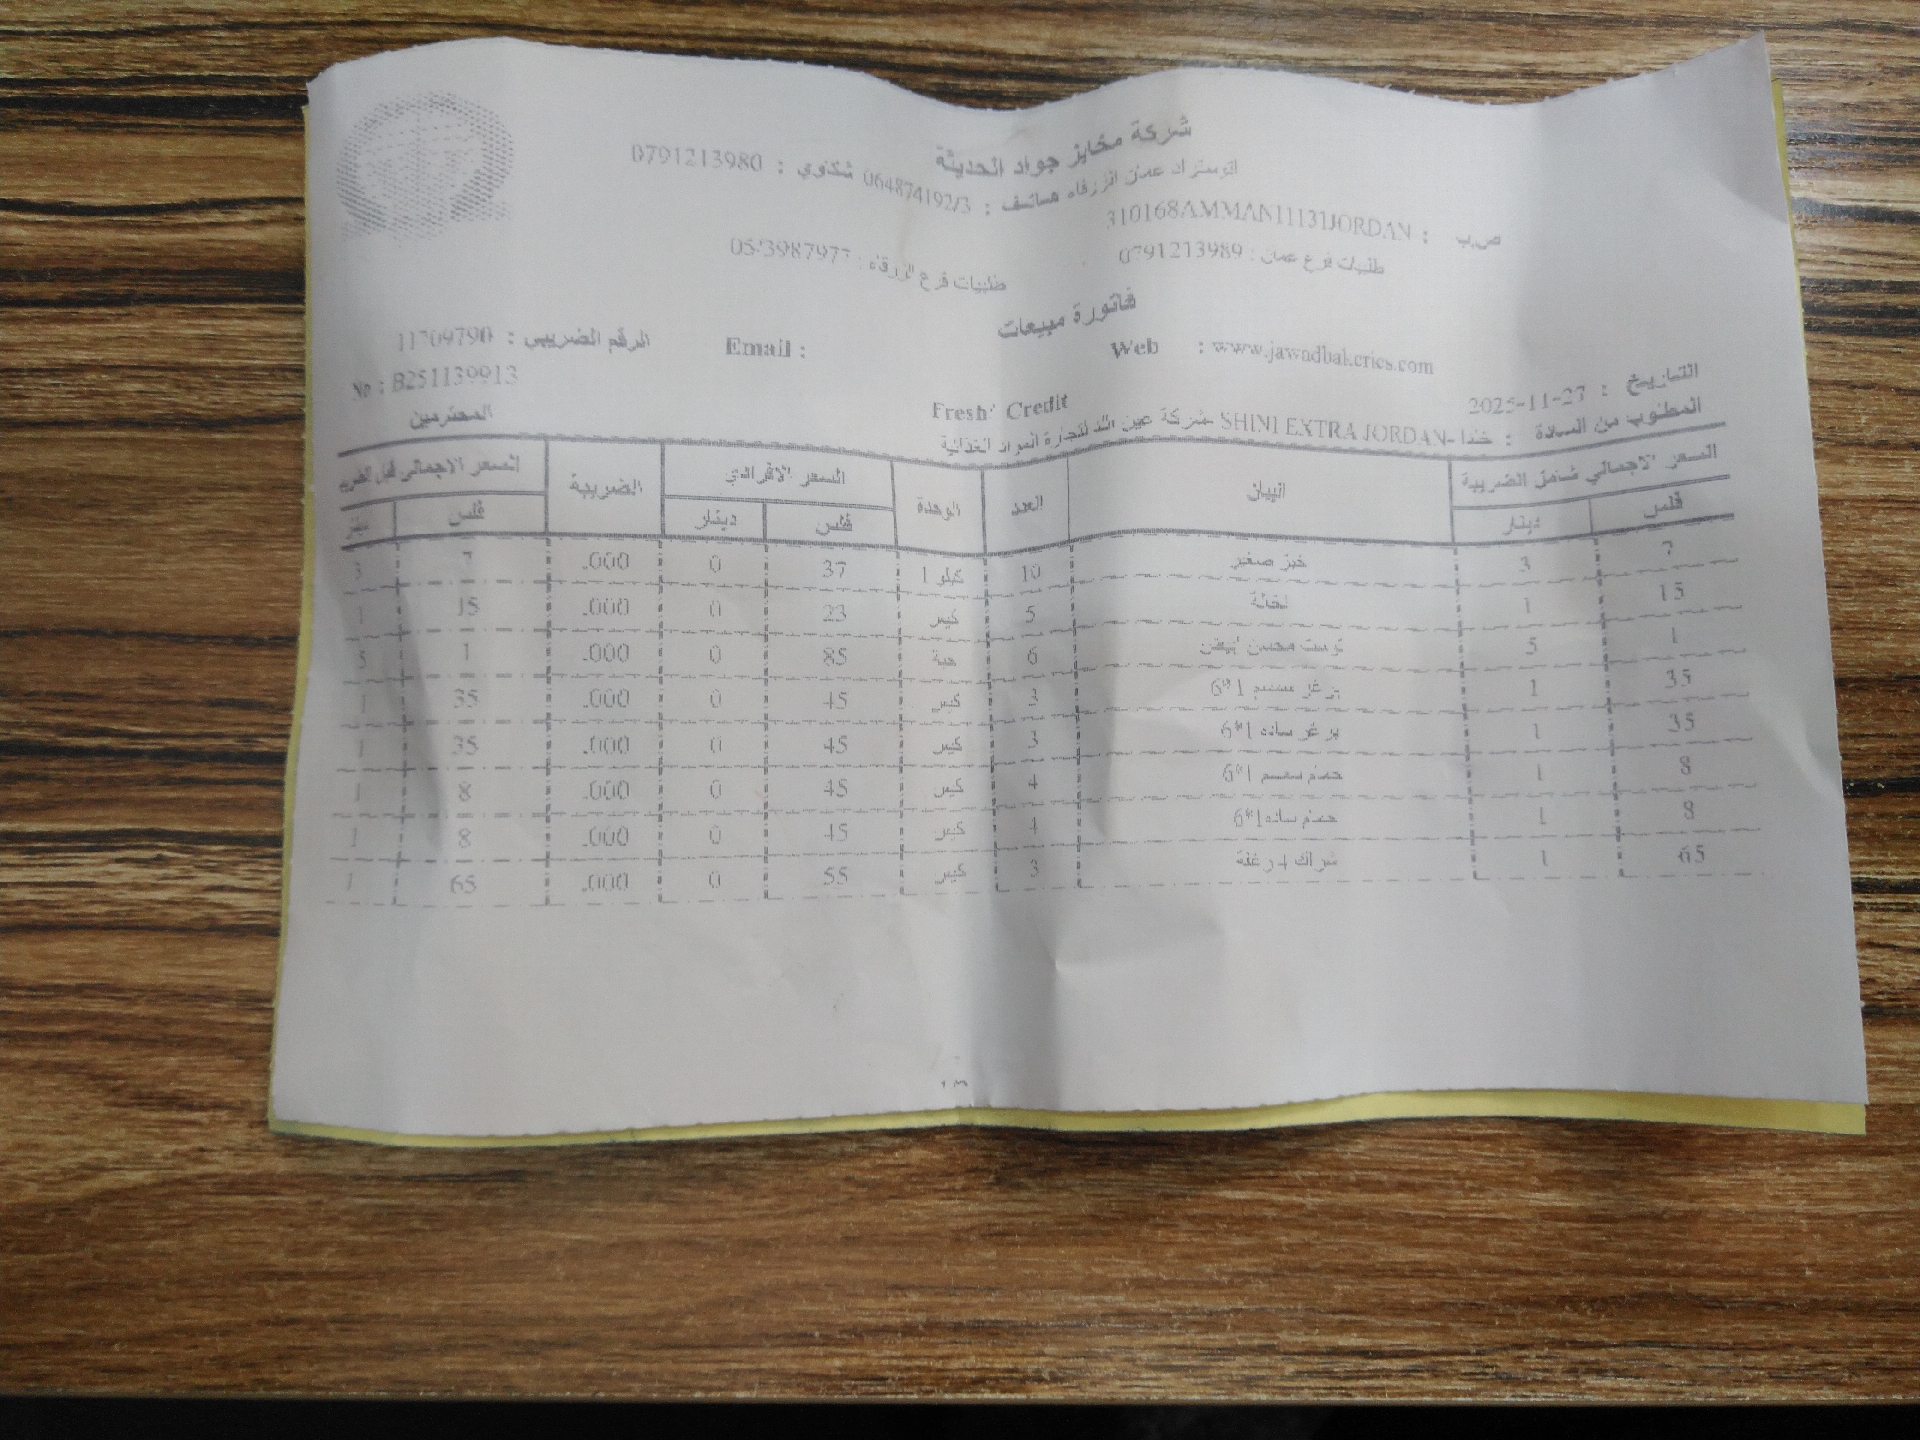 شركة مخابز جواد الحديثة
اتوستراد عمان الزرقاء هاتف : 064874192/3 شكاوي : 0791213980
ص.ب : 310168AMMAN11131JORDAN
طلبيات فرع عمان : 0791213989 طلبيات فرع الزرقاء : 05/3987977
فاتورة مبيعات
Web : www.jawadbakeries.com Email : الرقم الضريبي : 11709790
No : B251139913
التاريخ : 2025-11-27 Fresh' Credit
المطلوب من السادة : خلدا -SHINI EXTRA JORDAN شركة عين الد لتجارة المواد الغذائية المحترمين
السعر الاجمالي شامل الضريبة البيان العدد الوحدة السعر الافرادي الضريبة السعر الاجمالي قبل الضريبة
فلس دينار فلس دينار فلس
7 3 خبز صغير 10 كيلو 1 37 0 .000 7 3
15 1 نخالة 5 كيس 23 0 .000 15 1
1 5 توست محسن ابيض 6 حبة 85 0 .000 1 5
35 1 برغر سمسم 1*6 3 كيس 45 0 .000 35 1
35 1 برغر ساده 1*6 3 كيس 45 0 .000 35 1
8 1 حمام سمسم 1*6 4 كيس 45 0 .000 8 1
8 1 حمام ساده 1*6 4 كيس 45 0 .000 8 1
65 1 شراك 4 رغفة 3 كيس 55 0 .000 65 1